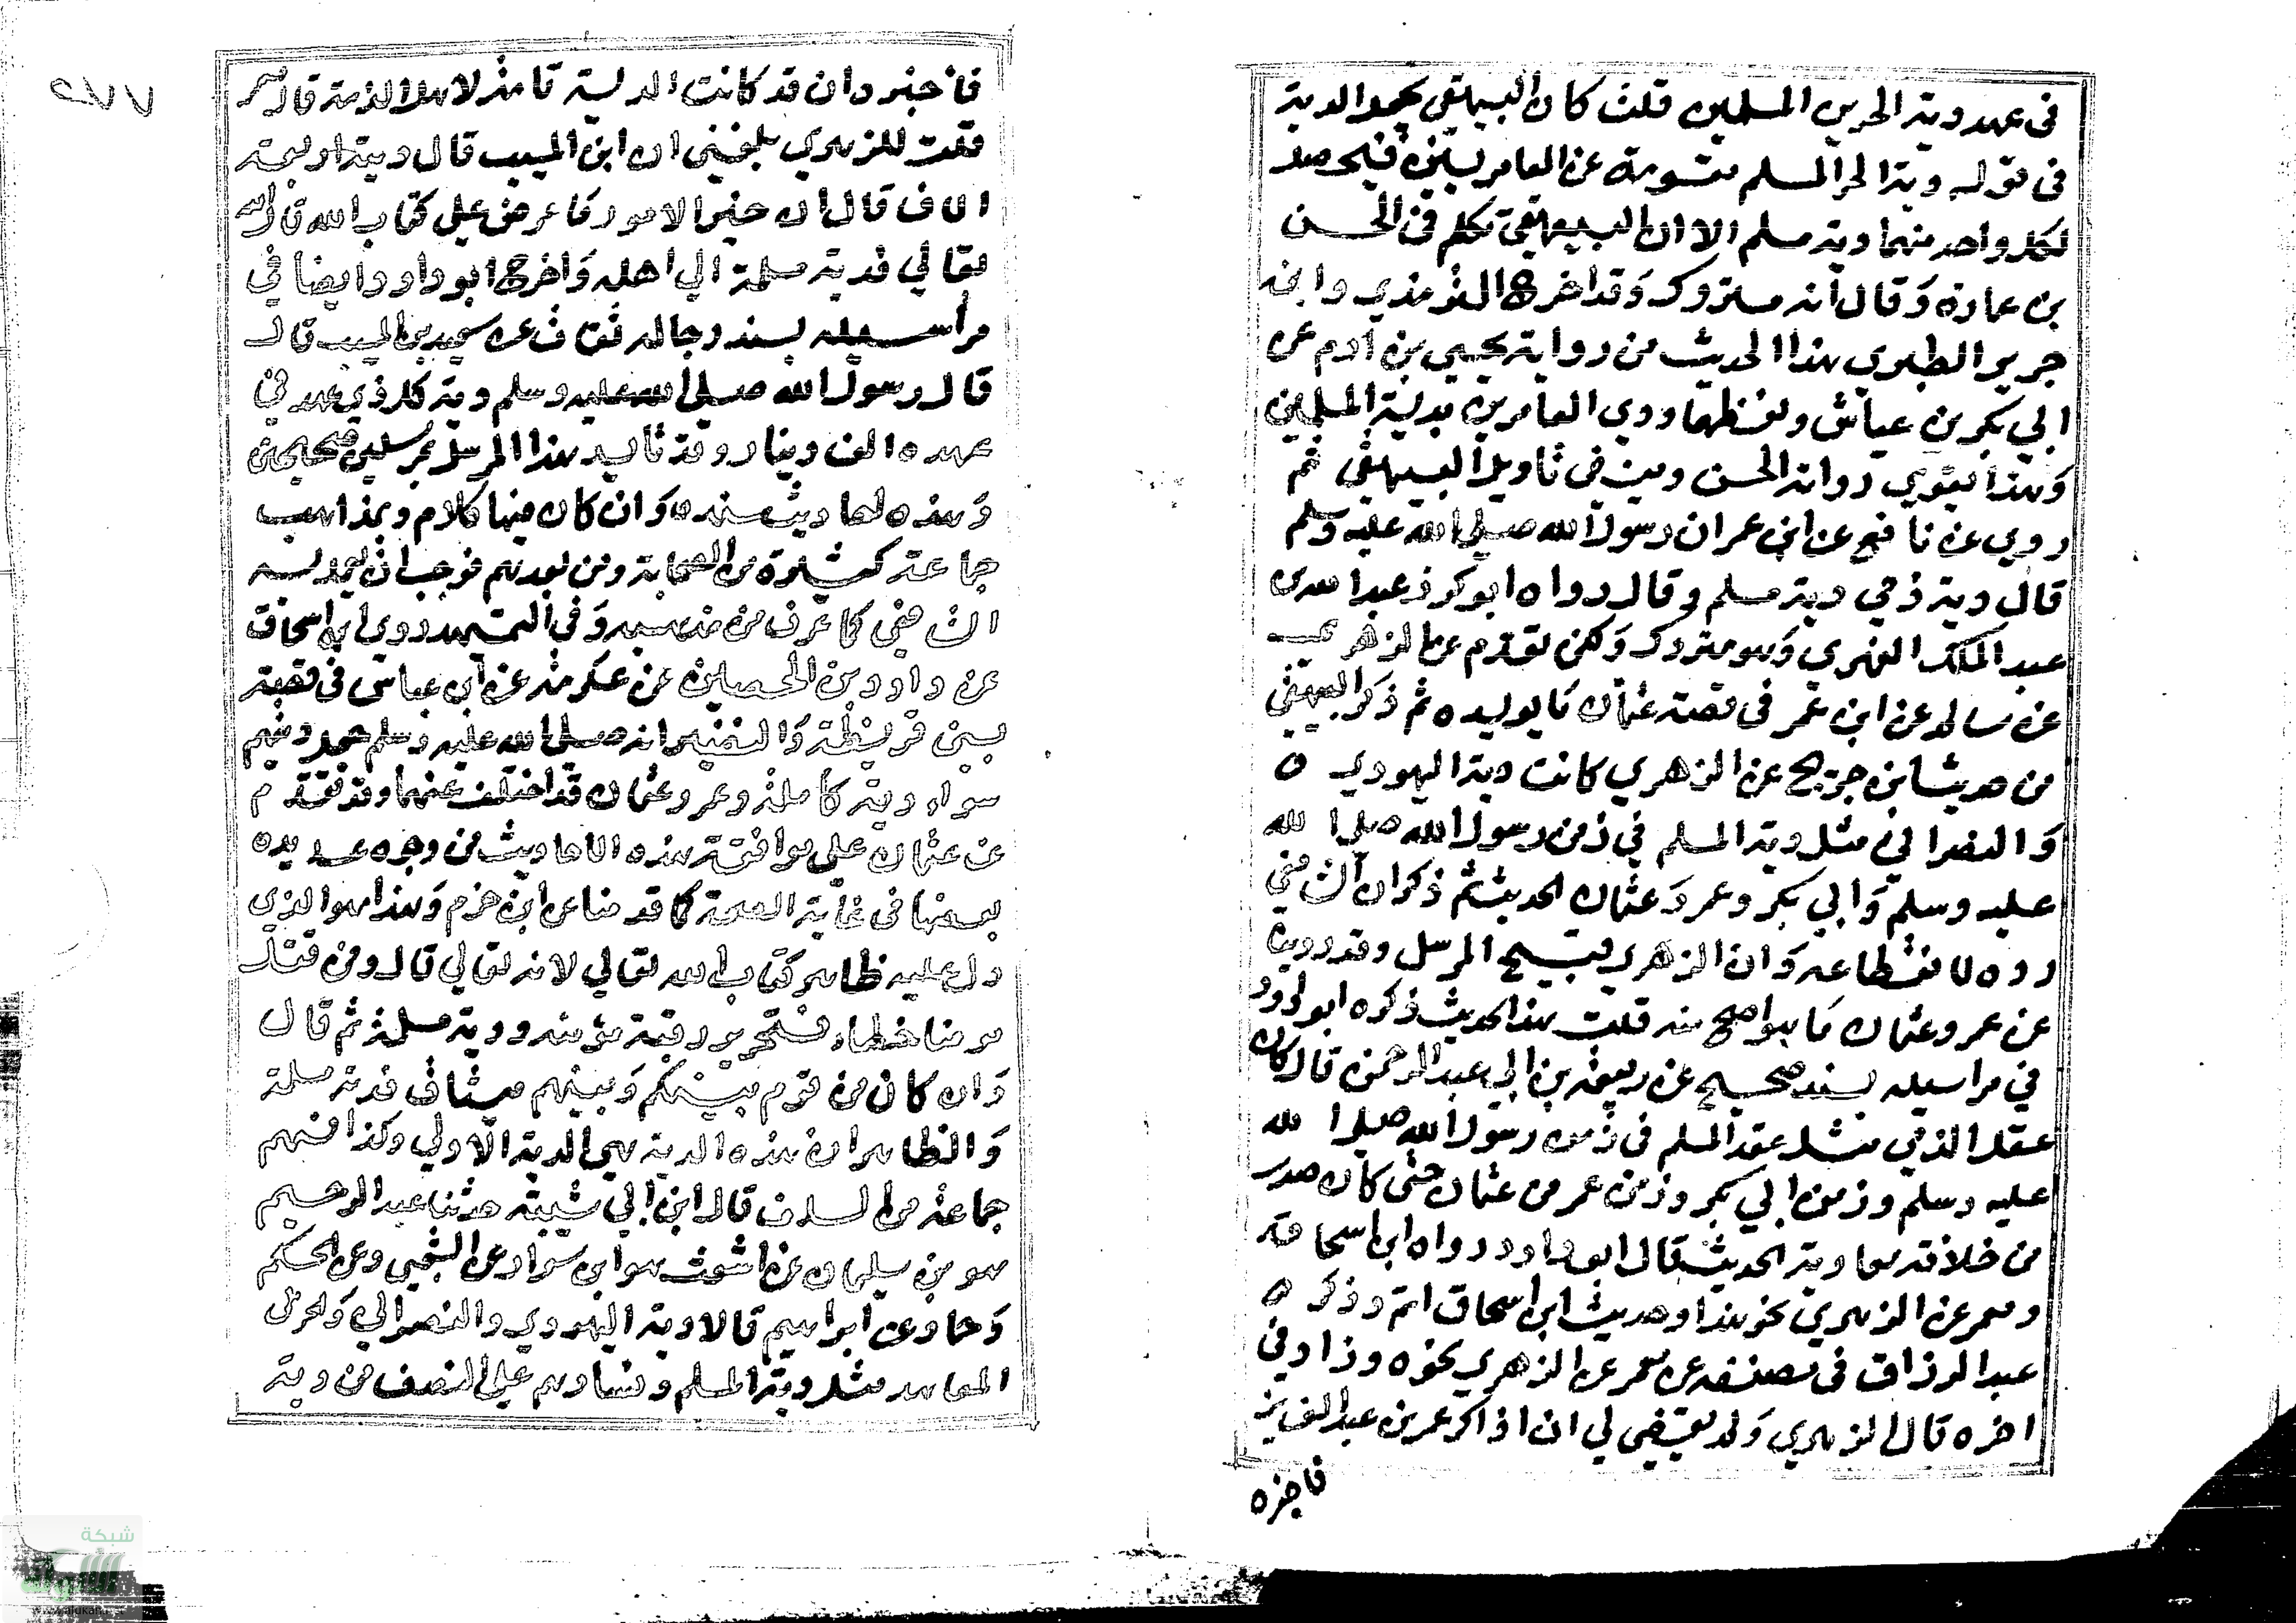 فى عهد دية الحرين المسلمين قلت كان البيهقى يحمل الدية
فى قوله دية الحر المسلم مقسومة عن العامريين فيحصل
لكل واحد منهما دية مسلم الا ان البيهقي تكلم فى الحسن
بن عمارة وقال انه متروك وقد اخرج الترمذي وابن
جرير الطبري هذا الحديث من رواية يحيى بن ادم عن
ابي بكر بن عياش ولفظهما ودي العامرين بدية المسلمين
وهذا يقوي رواية الحسن وينفي تاويل البيهقي ثم
روي عن نافع عن ابن عمر ان رسول الله صلى الله عليه وسلم
قال دية ذمي دية مسلم وقال رواه ابو كرز عبد الله بن
عبد الملك الفهري وهو متروك ولكن تقدم عن الزهري
عن سالم عن ابن عمر فى قصة عثمان ما يويده ثم ذكر البيهقي
من حديث ابن جريج عن الزهري كانت دية اليهودي ه
والنصراني مثل دية المسلم في زمن رسول الله صلى الله
عليه وسلم وابي بكر وعمر وعثمان الحديث ثم ذكر ان الشافعي
رده لانقطاعه وان الزهري قبيح المرسل وقد روينا
عن عمر وعثمان ما هو اصح منه قلت هذا الحديث ذكره ابو داود
في مراسيله بسند صحيح عن ربيعة بن ابي عبد الرحمن قال كان
عقل الذمي مثل عقل المسلم فى زمن رسول الله صلى الله
عليه وسلم وزمن ابي بكر وزمن عمر من عثمان حتى كان صدر
من خلافة معاوية الحديث قال ابو داود رواه ابن اسحاق
ومعمر عن الزهري نحو هذا وحديث ابن اسحاق اتم وذكر ه
عبد الرزاق فى مصنفه عن معمر عن الزهري نحوه وزاد في
اخره قال الزهري ولم يقضي لي ان اذاكر عمر بن عبد العزيز
فاخبره
٢٧٧
فاخبره ان قد كانت الدية تامة لاهل الذمة قال معمر
قلت للزهري بلغني ان ابن المسيب قال ديته اربعة
الاف قال ان خير الامور ما عرض على كتاب الله قال الله
تعالي فدية مسلمة الي اهله واخرج ابو داود ايضا في
مراسيله بسند رجاله ثقات عن سعيد بن المسيب قال
قال رسول الله صلى الله عليه وسلم دية كل ذي عهد في
عهده الف دينار وقد تأيد هذا المرسل بمرسلين صحيحين
وهذه احاديث مسنده وان كان فيها كلام وبمذاهب
جماعة كثيرة من الصحابة ومن بعدهم فوجب ان يعمل به
الشافعي كما عرف من مذهبه وفي التمهيد روى ابن اسحاق
عن داود بن الحصين عن عكرمة عن ابن عباس فى قصة
بني قريظة والنضير انه صلى الله عليه وسلم جعل ديتهم
سواء دية كاملة وعمر وعثمان قد اختلف عنهما وقد تقدم
عن عثمان على موافقة هذه الاحاديث من وجوه عديده
بعضها فى غاية الصحة كما قدمنا عن ابن حزم وهذا هو الذي
دل عليه ظاهر كتاب الله تعالي لانه تعالي قال ومن قتل
مومنا خطاء فتحرير رقبة مؤمنه ودية مسلمة ثم قال
وان كان من قوم بينكم وبينهم ميثاق فدية مسلمة
والظاهر ان هذه الدية هي الدية الاولي وكذا فهم
جماعة من السلف قال ابن ابي شيبة حدثنا عبد الرحيم
هو بن سليمان عن اشعث هو ابن سوار عن الشعبي وعن الحكم
وحماد عن ابراهيم قالا دية اليهودي والنصراني والحربي
المعاهد مثل دية المسلم ونساءهم علي النصف من دية